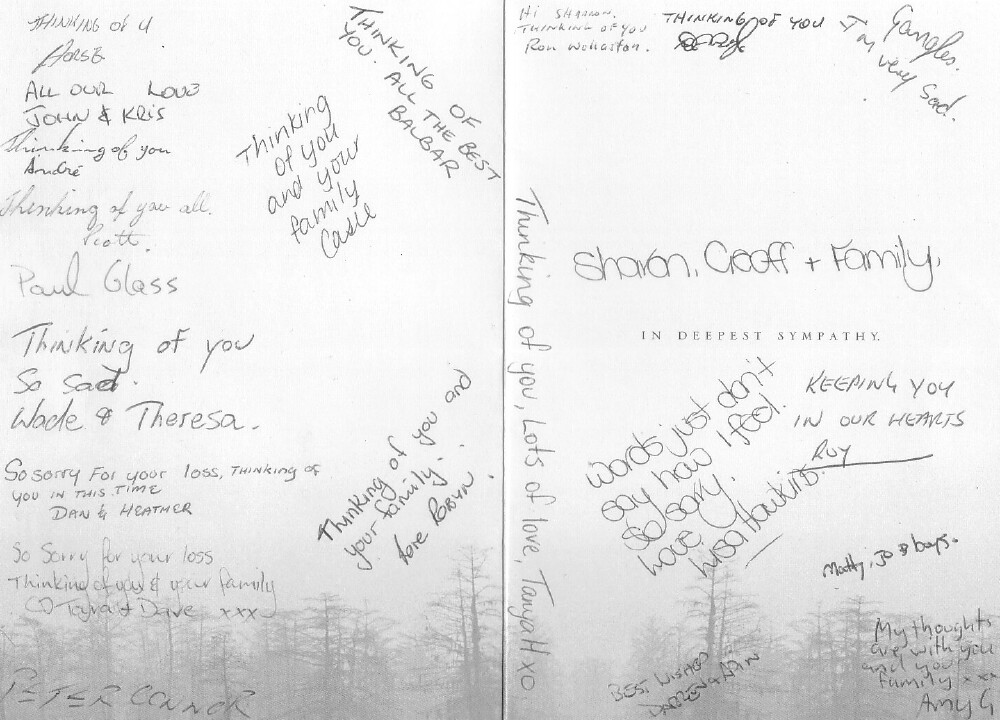 THINKING OF U
HORSE
ALL OUR LOVE
JOHN & KRIS
Thinking of you
André
Thinking of you all.
Scott.
Paul Glass
Thinking of you
So sad.
Wade & Theresa.
So sorry For your loss, THINKING OF
YOU IN THIS TIME
DAN & HEATHER
So Sorry for your loss
Thinking of you & your family
Tayra + Dave xxx
PETER CONNOR
THINKING OF
YOU. ALL THE BEST
BALBAR
Thinking
of you
and your
family
Casie
Thinking of you and
your family.
Love Robyn.
Hi SHARRON.
THINKING OF YOU
Ron Wollaston.
THINKING OF YOU
Gangles.
I'm very Sad.
Thinking of you, Lots of love, Tanya H xo
Sharon, Geoff + Family,
IN DEEPEST SYMPATHY.
words just don't
say how I feel.
So sorry.
Love
Lisa Hawkins.
KEEPING YOU
IN OUR HEARTS
ROY
Matty, Jo & boys.
BEST WISHES
DARREN & ANN
My thoughts
are with you
and your
family xxx
Amy G